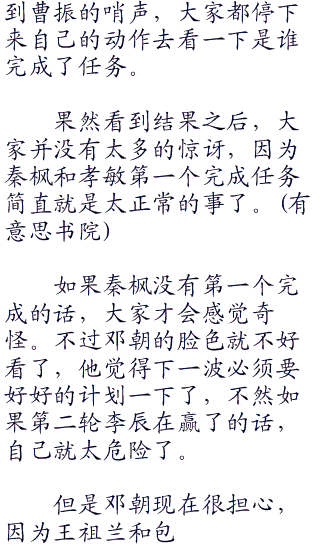 到曹振的哨声，大家都停下
来自己的动作去看一下是谁
完成了任务。
果然看到结果之后，大
家并没有太多的惊讶，因为
秦枫和孝敏第一个完成任务
简直就是太正常的事了。(有
意思书院)
如果秦枫没有第一个完
成的话，大家才会感觉奇
怪。不过邓朝的脸色就不好
看了，他觉得下一波必须要
好好的计划一下了，不然如
果第二轮李辰在赢了的话，
自己就太危险了。
但是邓朝现在很担心，
因为王祖兰和包